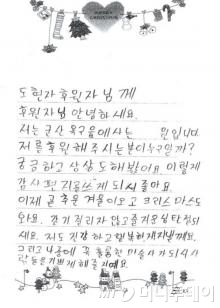 MERRY
CHRISTMAS
도현자 후원자님께
후원자님 안녕하세요.
저는 군산 옥구읍에사는 원입니다.
저를 후원해 주시는 분이 누구일까?
궁금하고 상상도 해봤어요 이렇게
감사편지를쓰게 되서 좋아요.
이제 곧 추운 겨울이오고 크리스마스도
와요. 감기 걸리지 않고 즐거운 성탄절 되
세요. 저도 건강하고 잘
그리고 나중에 꼭 훌륭한 미술가가 되어서
기쁘게 해줄거예요.
머니투데이